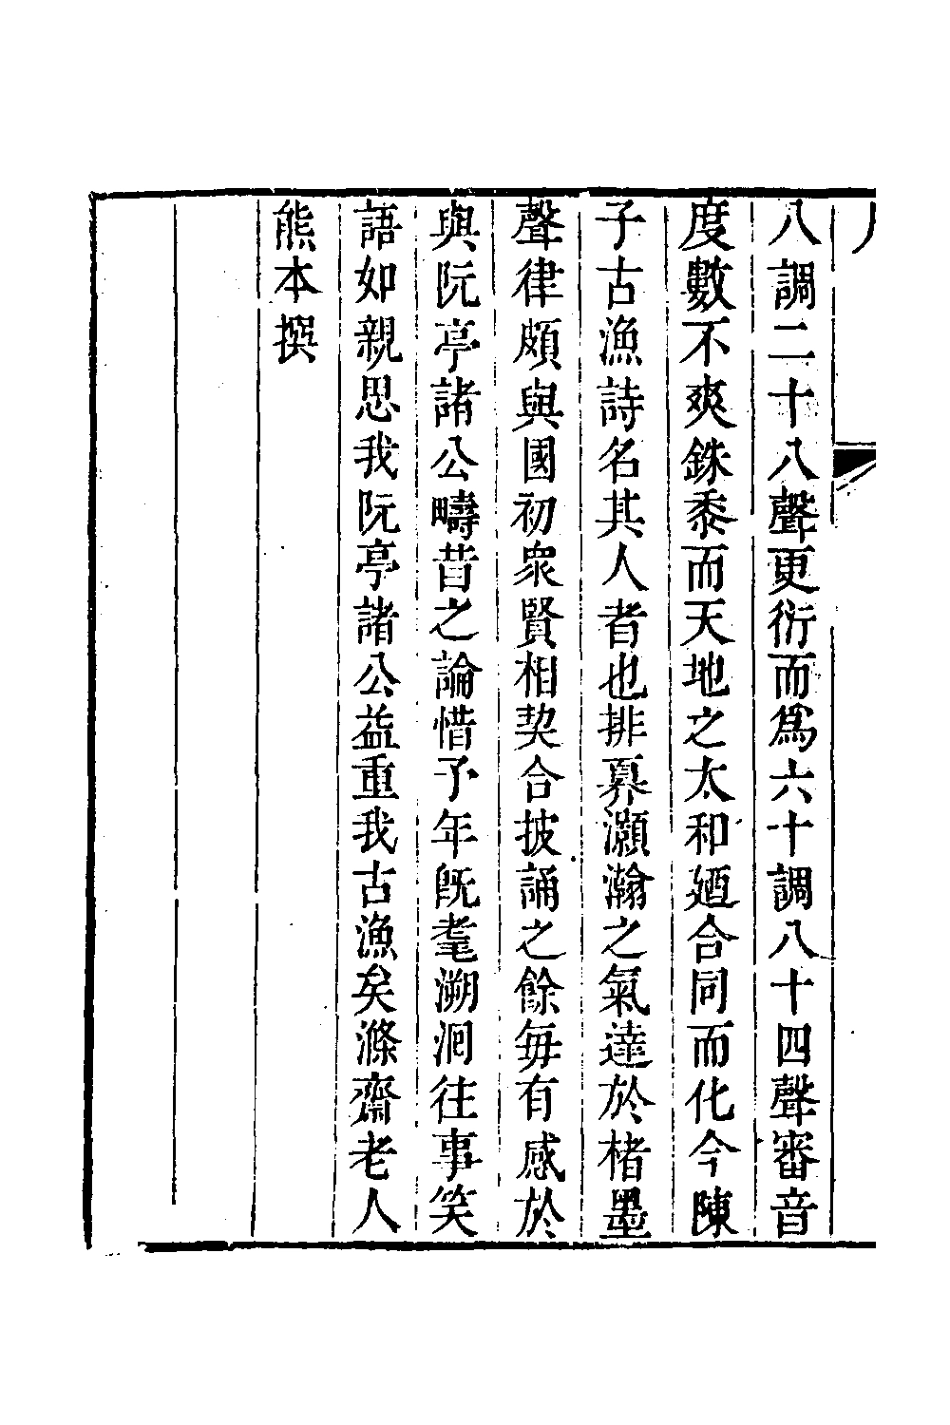 八調二十八聲更衍而爲六十調八十四聲審音
度數不爽銖黍而天地之太和廼合同而化今陳
子古漁詩名其人者也排奡灝瀚之氣達於楮墨
聲律頗與國初衆賢相契合披誦之餘每有感於
與阮亭諸公疇昔之論惜予年旣耄溯洄往事笑
語如親思我阮亭諸公益重我古漁矣滌齋老人
熊本撰